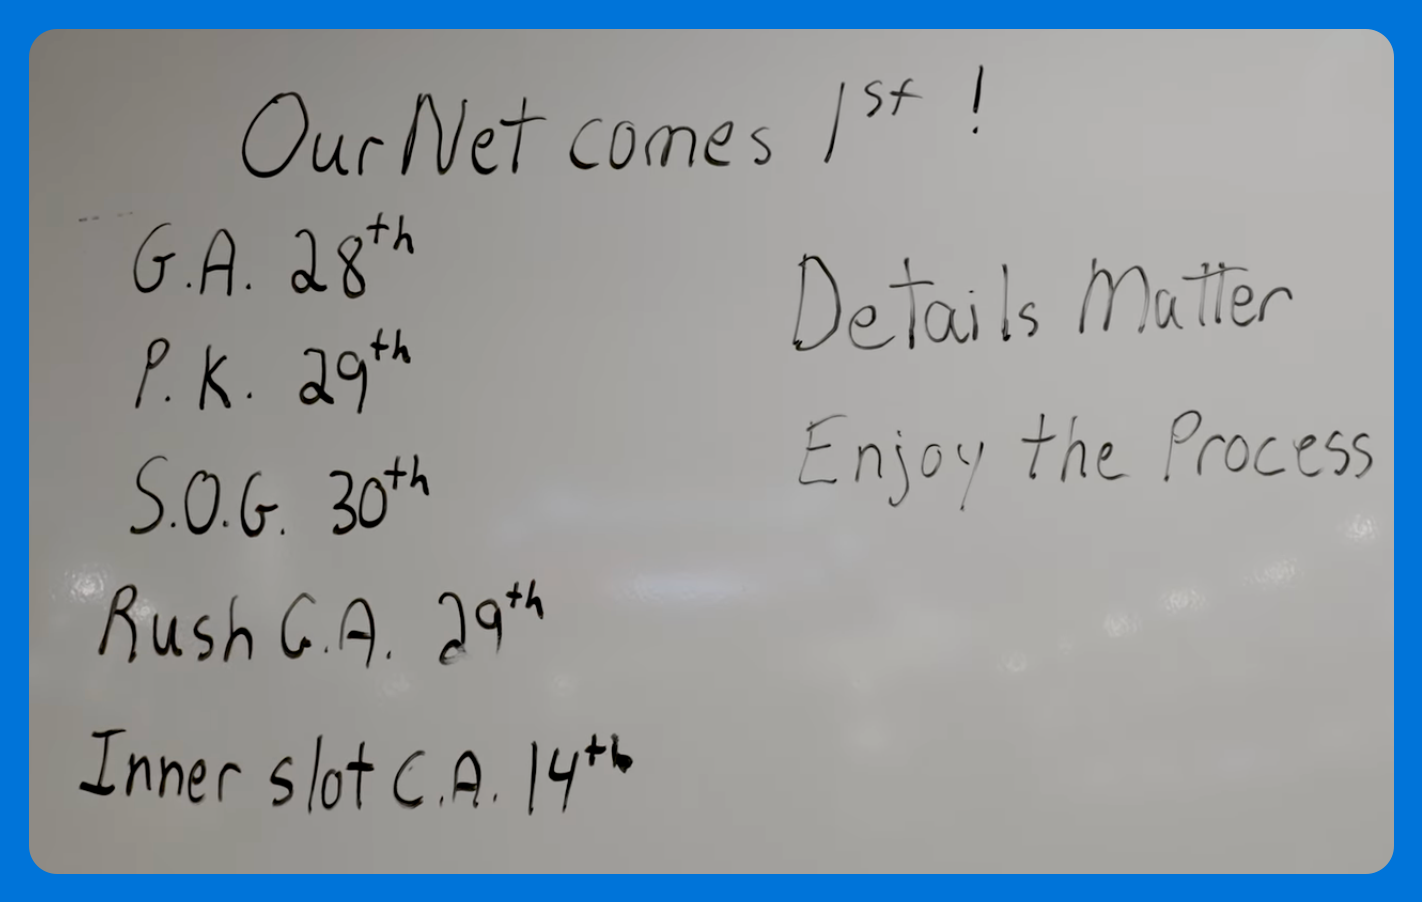 Our Net comes 1st !
G.A. 28th
P.K. 29th
S.O.G. 30th
Rush C.A. 29th
Inner slot C.A. 14th
Details Matter
Enjoy the Process